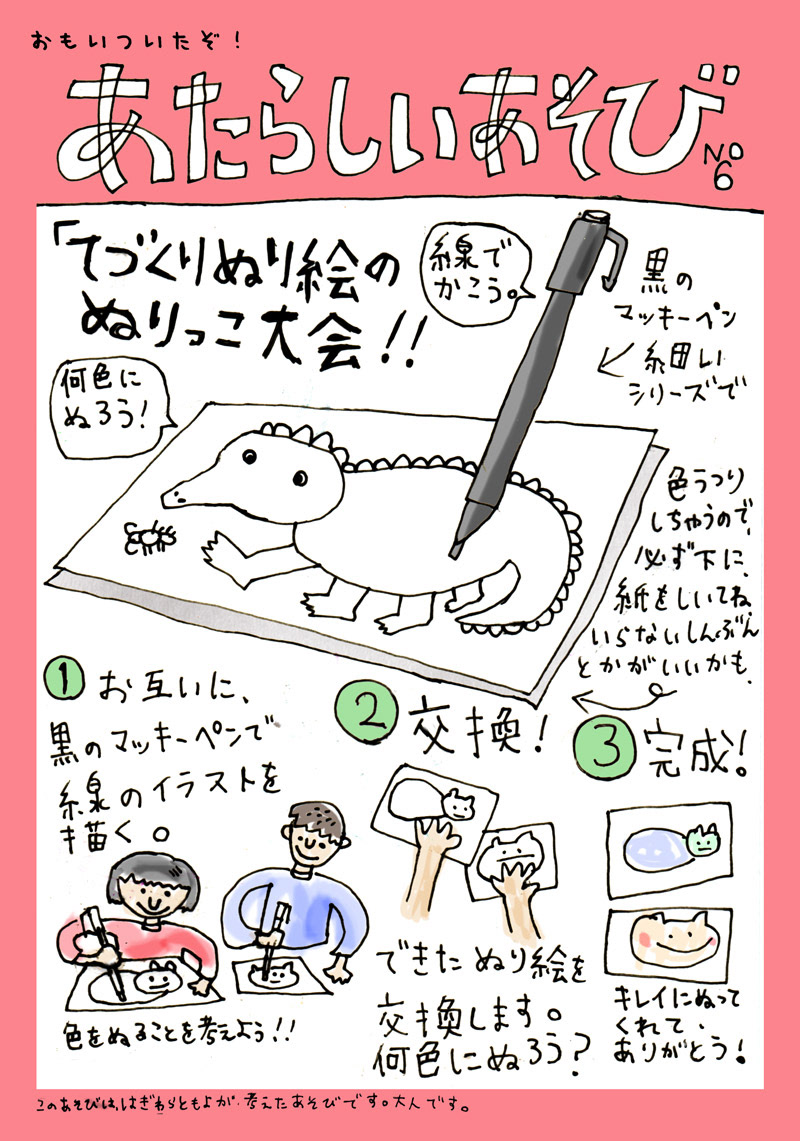 おもいついたぞ!
あたらしいあそび
No
6
「てづくりぬり絵の
ぬりっこ大会!!
線で
かこう。
黒の
マッキーペン
細い
シリーズで
何色に
ぬろう!
色うつり
しちゃうので、
必ず下に、
紙をしいてね、
いらないしんぶん
とかがいいかも、
1 お互いに、
黒のマッキーペンで
線のイラストを
描く。
色をぬることを考えよう!!
2 交換!
できたぬり絵を
交換します。
何色にぬろう?
3 完成!
キレイにぬって
くれて、
ありがとう!
このあそびは、はぎわらともよが、考えたあそびです。大人です。